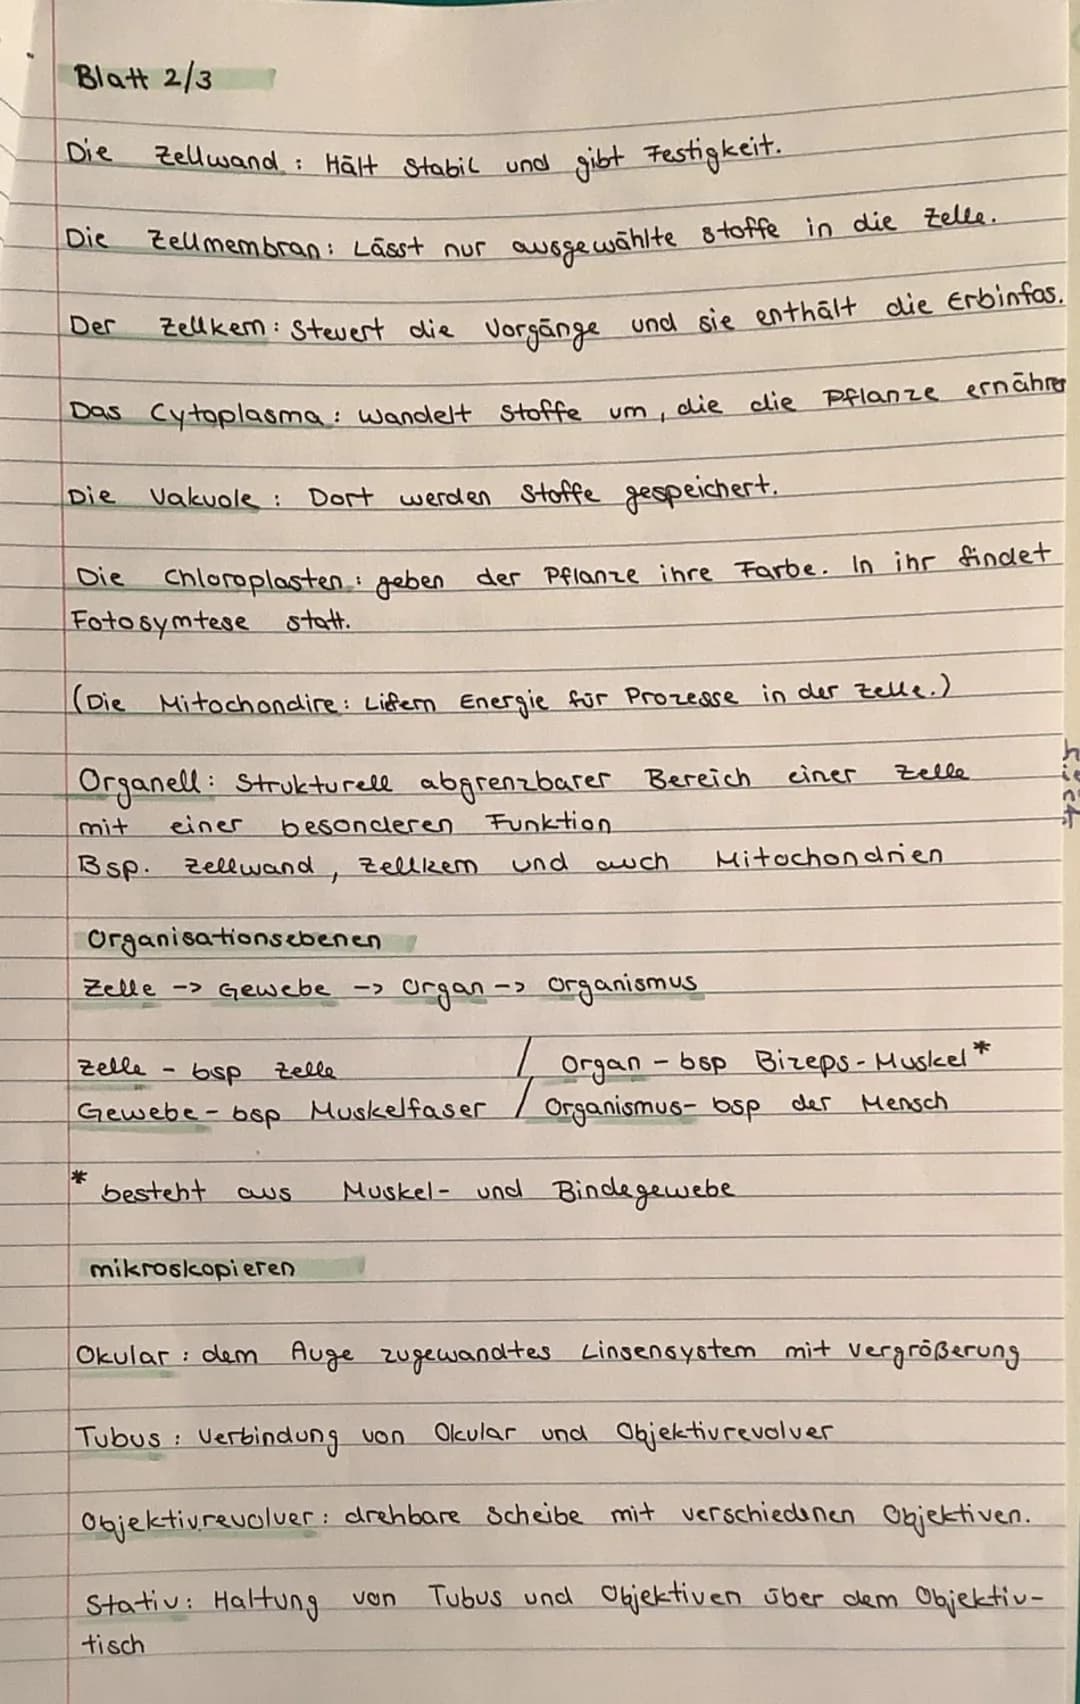 Blatt 2/3
Die Zellwand : Hält Stabil und gibt Festigkeit.
Die Zellmembran : Lässt nur ausgewählte Stoffe in die Zelle.
Der Zellkern : Steuert die Vorgänge und sie enthält die Erbinfos.
Das Cytoplasma : wandelt Stoffe um, die die Pflanze ernähren
Die Vakuole : Dort werden Stoffe gespeichert.
Die Chloroplasten : geben der Pflanze ihre Farbe. In ihr findet
Fotosymtese statt.
(Die Mitochondire : Lifern Energie für Prozesse in der Zelle.)
Organell : Strukturell abgrenzbarer Bereich einer Zelle
mit einer besonderen Funktion
Bsp. Zellwand, Zellkern und auch Mitochondrien
Organisationsebenen
Zelle -> Gewebe -> Organ -> Organismus
Zelle - bsp Zelle / Organ - bsp Bizeps-Muskel*
Gewebe - bsp Muskelfaser / Organismus - bsp der Mensch
* besteht aus Muskel- und Bindegewebe
mikroskopieren
Okular : dem Auge zugewandtes Linsensystem mit Vergrößerung
Tubus : Verbindung von Okular und Objektivrevolver
Objektivrevolver : drehbare Scheibe mit verschiedenen Objektiven.
Stativ : Haltung von Tubus und Objektiven über dem Objektiv-
tisch